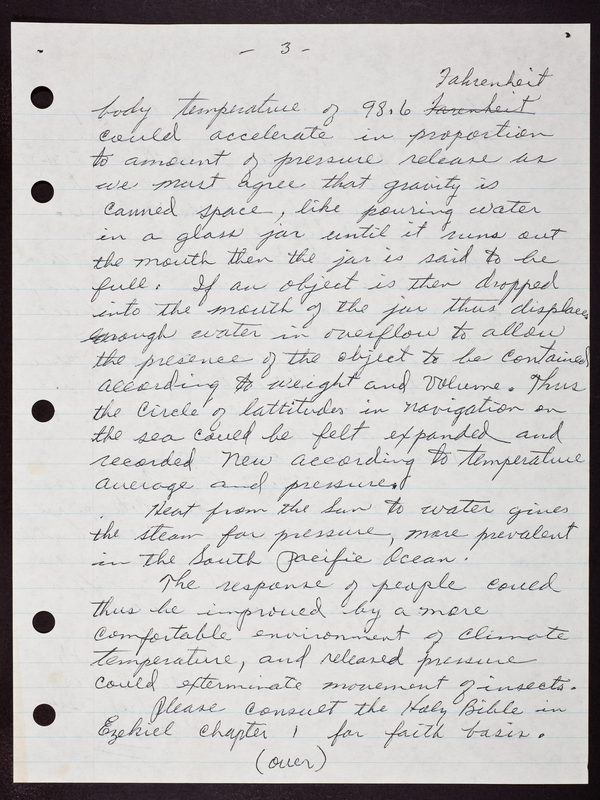 - 3 -
Fahrenheit
body temperature of 98.6 Farenheit
could accelerate in proportion
to amount of pressure release as
we must agree that gravity is
canned space, like pouring water
in a glass jar until it runs out
the mouth then the jar is said to be
full. If an object is then dropped
into the mouth of the jar thus displaces
enough water in overflow to allow
the presence of the object to be contained
according to weight and volume. Thus
the circle of lattitudes in navigation on
the sea could be felt expanded and
recorded new according to temperature
average and pressure.
Heat from the Sun to water gives
the steam for pressure, more prevalent
in the South Pacific Ocean.
The response of people could
thus be improved by a more
comfortable environment of climate
temperature, and released pressure
could exterminate movement of insects.
Please consult the Holy Bible in
Ezekiel chapter 1 for faith basis.
(over)